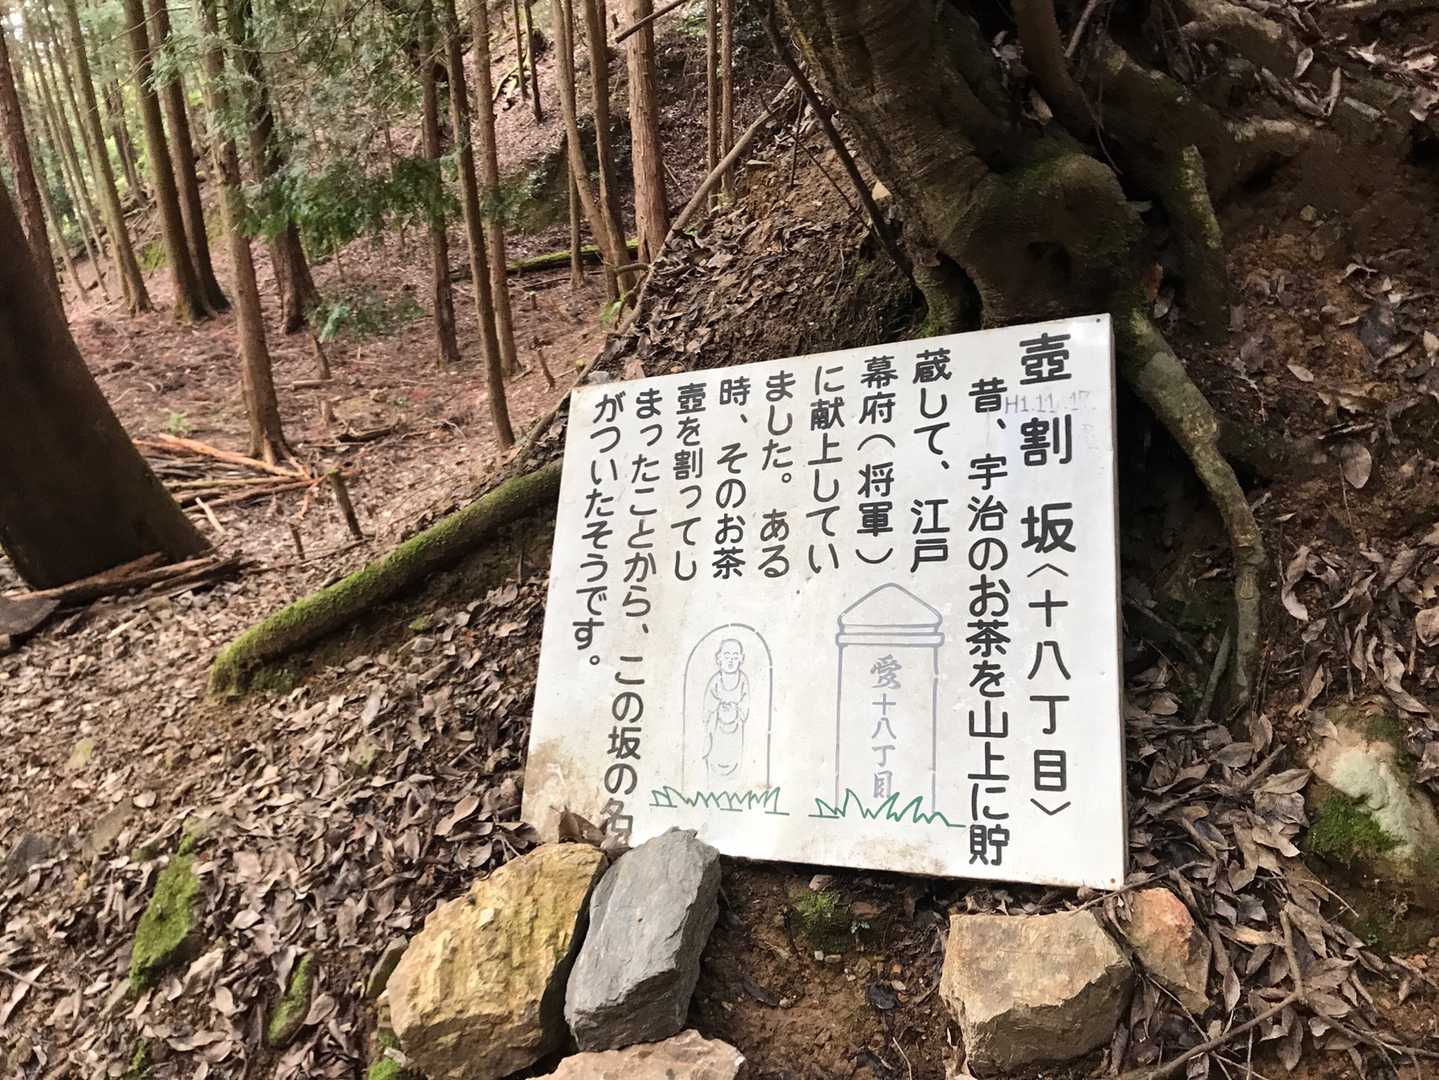 壺割坂〈十八丁目〉
H1.11.17
昔、宇治のお茶を山上に貯
蔵して、江戸
幕府（将軍）
に献上してい
ました。ある
時、そのお茶
壺を割ってし
まったことから、この坂の名
がついたそうです。
愛十八丁目